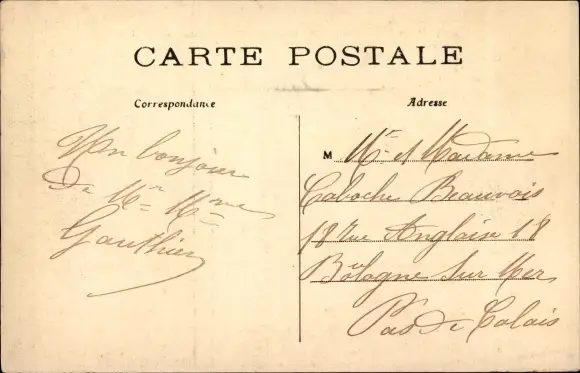 CARTE POSTALE
Correspondance
Adresse
Un bonjour
de Mr Mme
Gauthier
M Mr et Madame
Caboche Beauvois
18 rue Anglaise 18
Boulogne sur Mer
Pas de Calais